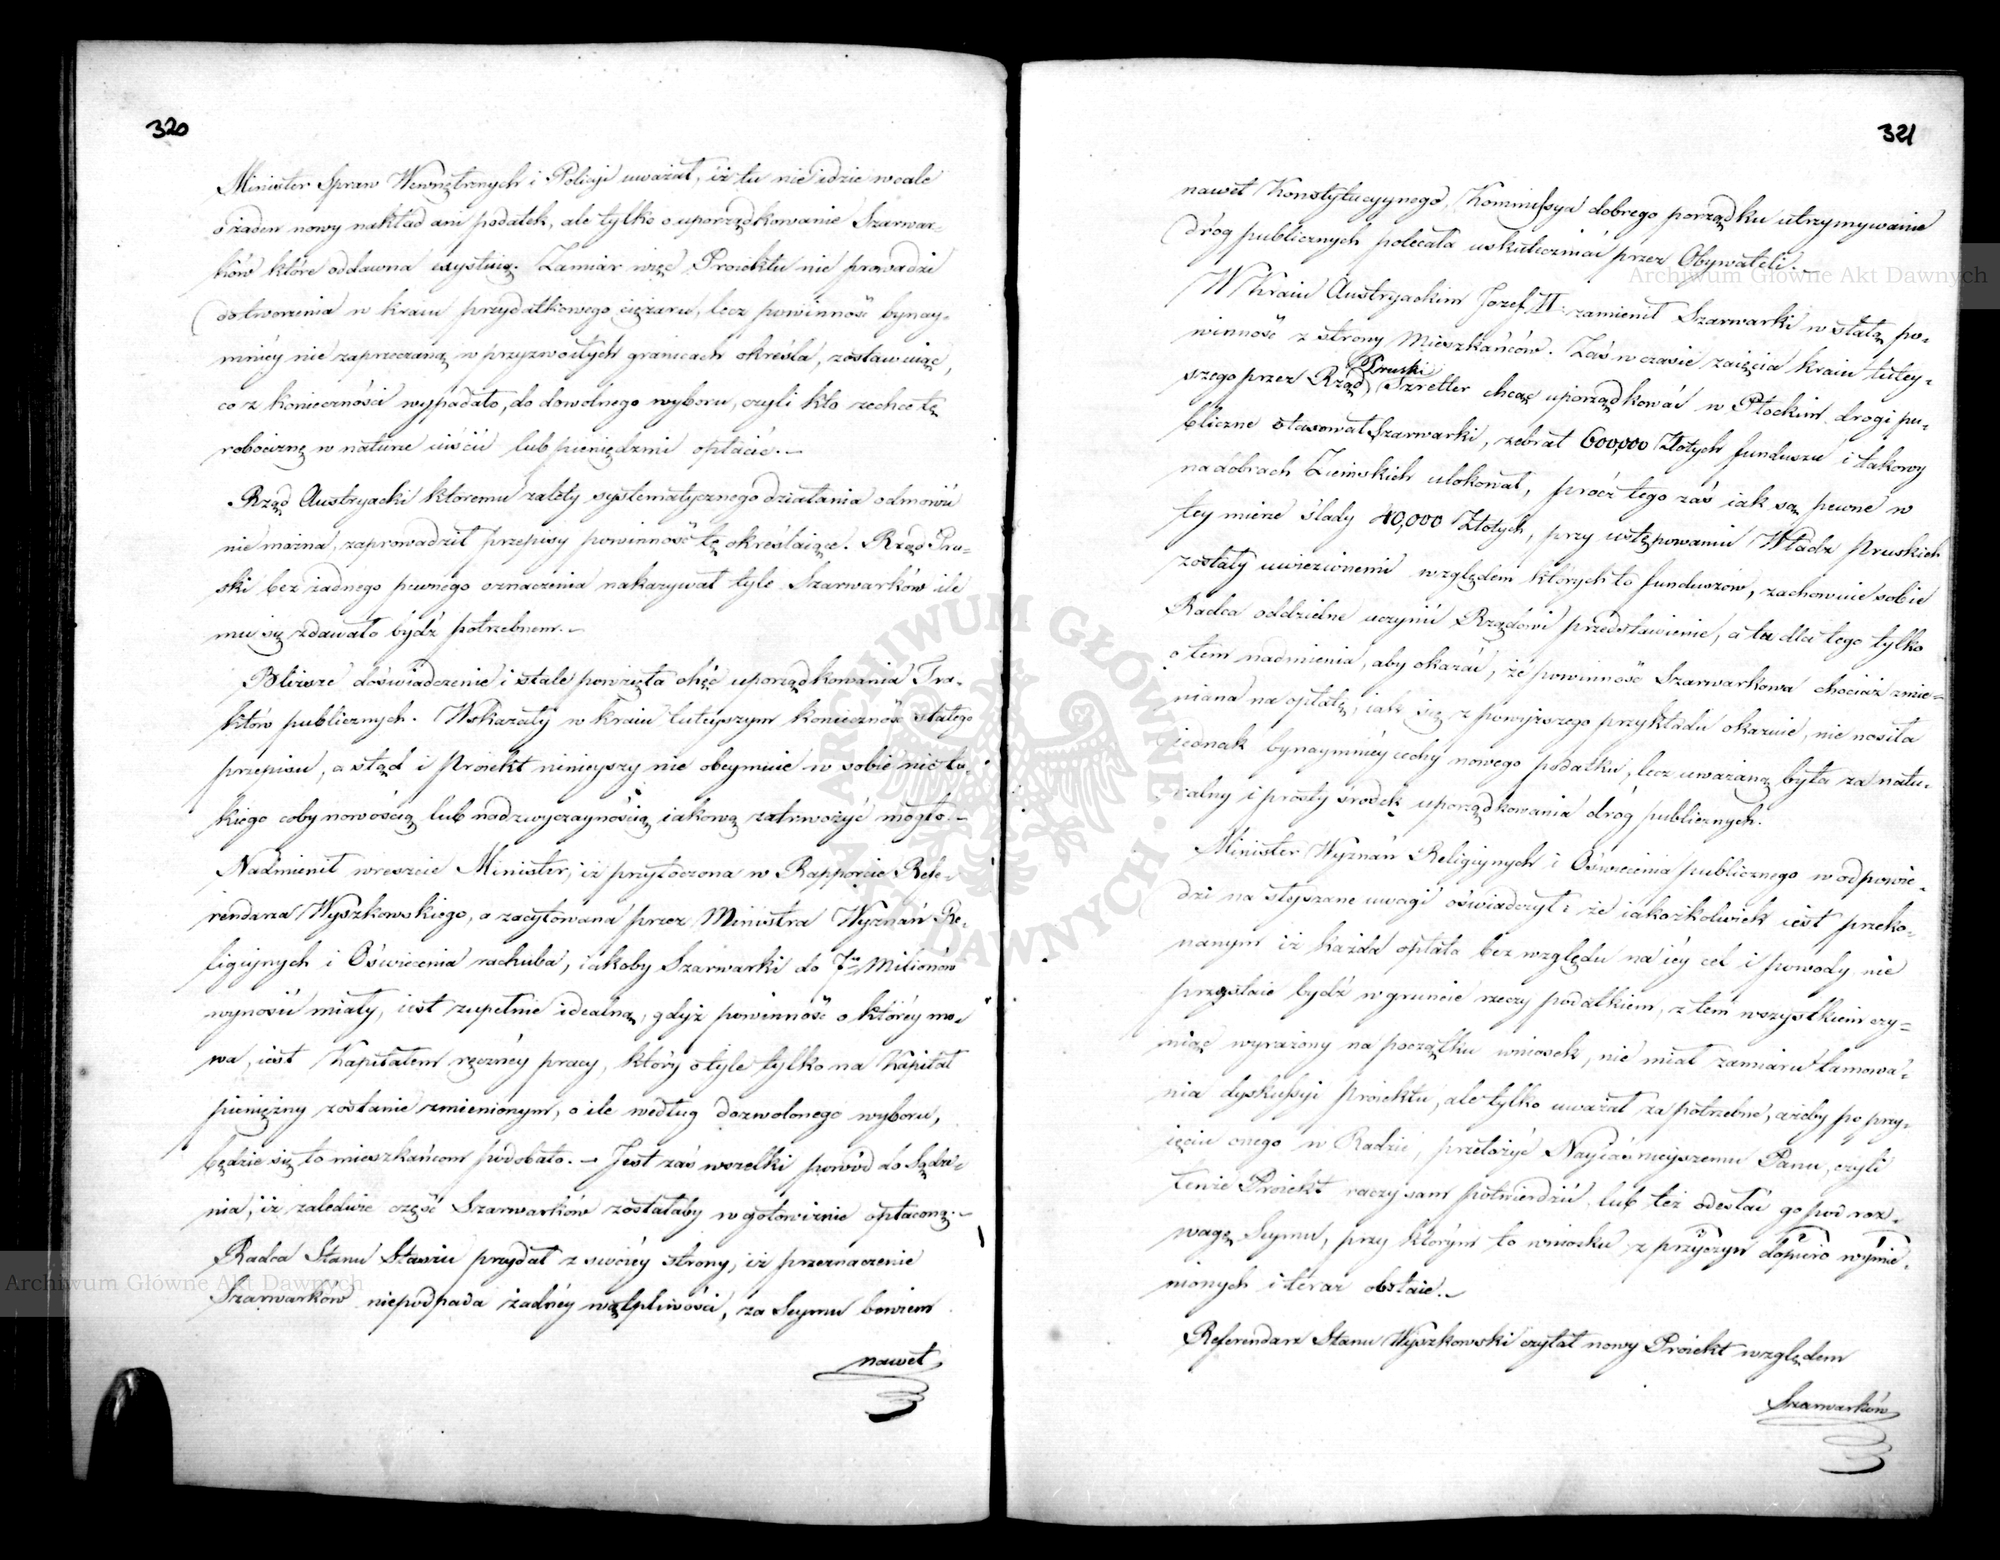 320
Minister Spraw Wewnętrznych i Policyi uważał, iż tu nie idzie wcale
o żaden nowy nakład ani podatek, ale tylko o uporządkowanie Szarwar-
ków które oddawna exystuią. Zamiar więc Proiektu nie prowadzi
do tworzenia w kraiu przydatkowego ciężaru, lecz powinność bynay-
mniéy nie zaprzeczaną w przyzwoitych granicach określa, zostawuiąc,
co z konieczności wypadało, do dowolnego wyboru, czyli kto zechce tę
robociznę w naturze uiścić lub pieniędzmi opłacić. –
Rząd Austryacki któremu zalety systematycznego działania odmówić
nie można, zaprowadził przepisy powinność tę określaiące. Rząd Pru-
ski bez żadnego pewnego oznaczenia nakazywał tyle Szarwarków ile
mu się zdawało bydź potrzebnem. –
Bliższe doświadczenie i stale powzięta chęć uporządkowania Tra-
któw publicznych. Wskazały w kraiu tuteyszym konieczność stałego
przepisu, a stąd i Proiekt ninieyszy nie obeymuie w sobie nic ta-
kiego coby nowością lub nadzwyczaynością iakową zatrwożyć mogło. –
Nadmienił wreszcie Minister, iż przytoczona w Rapporcie Refe-
rendarza Wyszkowskiego, a zacytowana przez Ministra Wyznań Re-
ligiynych i Oświecenia rachuba, iakoby Szarwarki do 7u Milionów
wynosić miały, iest zupełnie idealną, gdyż powinność o któréy mo-
wa, iest Kapitałem ręcznéy pracy, który o tyle tylko na Kapitał
pieniężny zostanie zmienionym, o ile według dozwolonego wyboru,
będzie się to mieszkańcom podobało. – Jest zaś wszelki powód do Sądze-
nia, iż zaledwie część Szarwarków zostałaby w gotowiznie opłaconą. –
Radca Stanu Staszic przydał z swoiéy strony, iż przeznaczenie
Szarwarków niepodpada żadnéy wątpliwości, za Seymu bowiem
nawet
321
nawet Konstytucyynego, Kommissya dobrego porządku utrzymywanie
dróg publicznych polecała uskuteczniać przez Obywateli. –
W Kraiu Austryackim Jozef II. zamienił Szarwarki w stałą po-
winność z strony Mieszkańców. Zaś w czasie zaięcia kraiu tutey-
Pruski
szego przez Rząd, Szretter chcąc uporządkować w Płockim drogi pu-
bliczne stasował Szarwarki, zebrał 600,000 Złotych funduszu i takowy
na dobrach Ziemskich ulokował, prócz tego zaś iak są pewne w
tey mierze ślady 40,000 Złotych, przy ustępowaniu Władz Pruskich
zostały uwiezionemi względem których to funduszów, zachowuie sobie
Radca oddzielne uczynić Rządowi przedstawienie, a tu dla tego tylko
o tem nadmienia, aby okazać, że powinność Szarwarkowa chociaż zmie-
niana na opłatę, iak się z powyższego przykładu okazuie, nie nosiła
iednak bynaymniéy cechy nowego podatku, lecz uważaną była za natu-
ralny i prosty środek uporządkowania dróg publicznych.
Minister Wyznań Religiynych i Oświecenia publicznego w odpowie-
dzi na słyszane uwagi oświadczył: że iakożkolwiek iest przeko-
nanym iż każda opłata bez względu na iéy cel i powody nie
przestaie bydź w gruncie rzeczy podatkiem, z tém wszystkiem czy-
niąc wyrażony na początku wniosek, nie miał zamiaru tamowa-
nia dyskussyi proiektu, ale tylko uważał za potrzebne, ażeby po przy-
ięciu onego w Radzie, przełożyć Nayiaśnieyszemu Panu, czyli
tenże Proiekt raczy sam potwierdzić, lub też odesłać go pod roz-
wagę Seymu, przy którym to wniosku z przyczyn dopiero wymie-
nionych i téraz obstaie. –
Referendarz Stanu Wyszkowski czytał nowy Proiekt względem
Szarwarków
Archiwum Główne Akt Dawnych
Archiwum Główne Akt Dawnych
ARCHIWUM GŁÓWNE AKT DAWNYCH